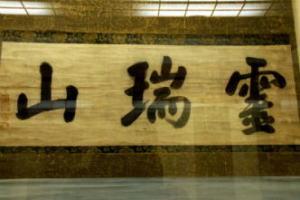 靈瑞山